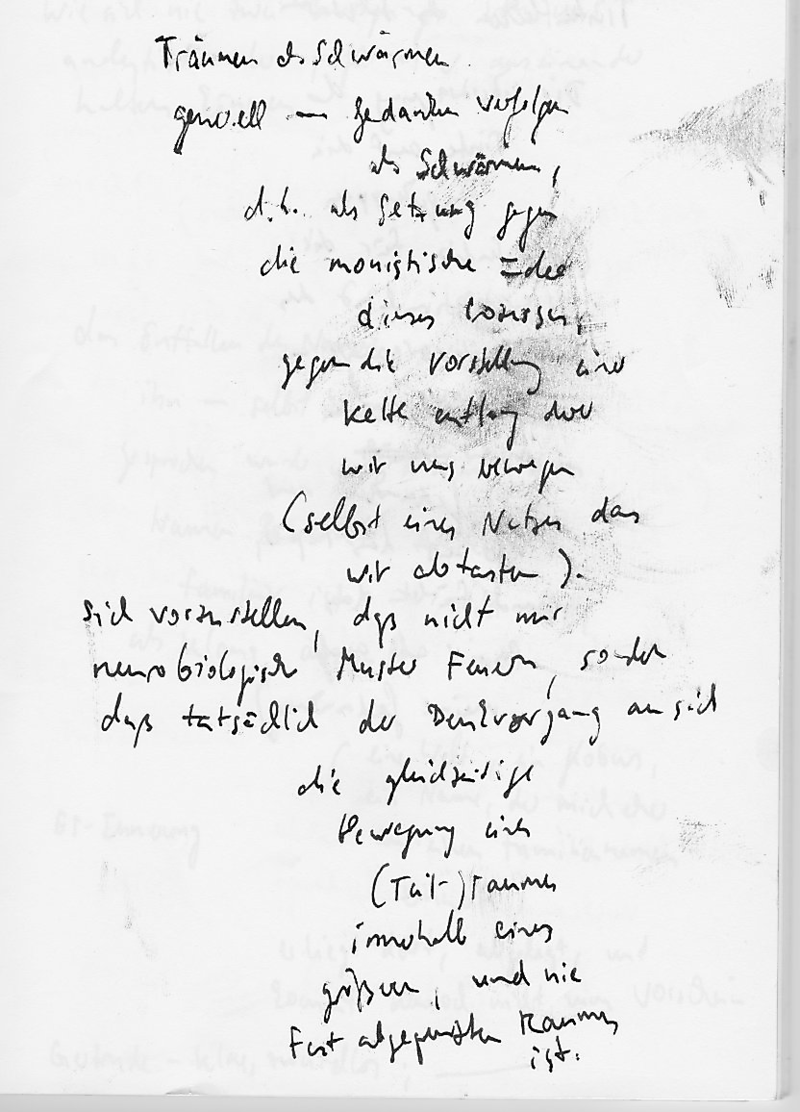 Träumen als Schwärmen.
generell — Gedanken verfolgen
als Schwärmen,
d.h. als Setzung gegen
die monistische Idee
dieses
gegen die Vorstellung einer
Kette entlang derer
wir uns bewegen
(selbst eines Netzes das
wir abtasten).
Sich vorzustellen, daß nicht nur
neurobiologische Muster Feuern, sondern
daß tatsächlich der Denkvorgang an sich
die gleichzeitige
Bewegung eines
(Teil-)raumes
innerhalb eines
größeren, und nie
fest abgegrenzten Raumes
ist.